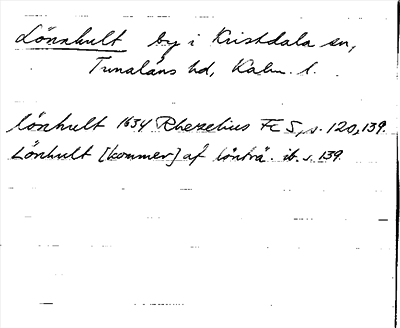 Lönnhult by i Kristdala sn,
Tunaläns hd, Kalm. l.
lönhult 1634 Rhezelius FC 5, s. 120, 139.
Lönhult [kommer] af lönträ. ib. s. 139.